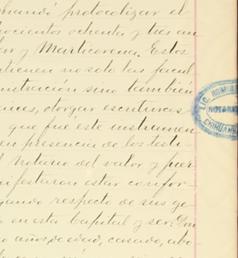 mandó protocolizar el
ocientos ochenta y tres an
lar y Marticorena. Estos
tienen no solo las facul
nistración sino también
aices, otorgar escrituras
que fué este instrumen
en presencia de los testi
el Notario del valor y fuer
nifestaron estar confor
gando respecto de sus ge
en esta Capital y ser Don
años, de edad, casado, abo
LIC. ROM
CHIHUAHUA